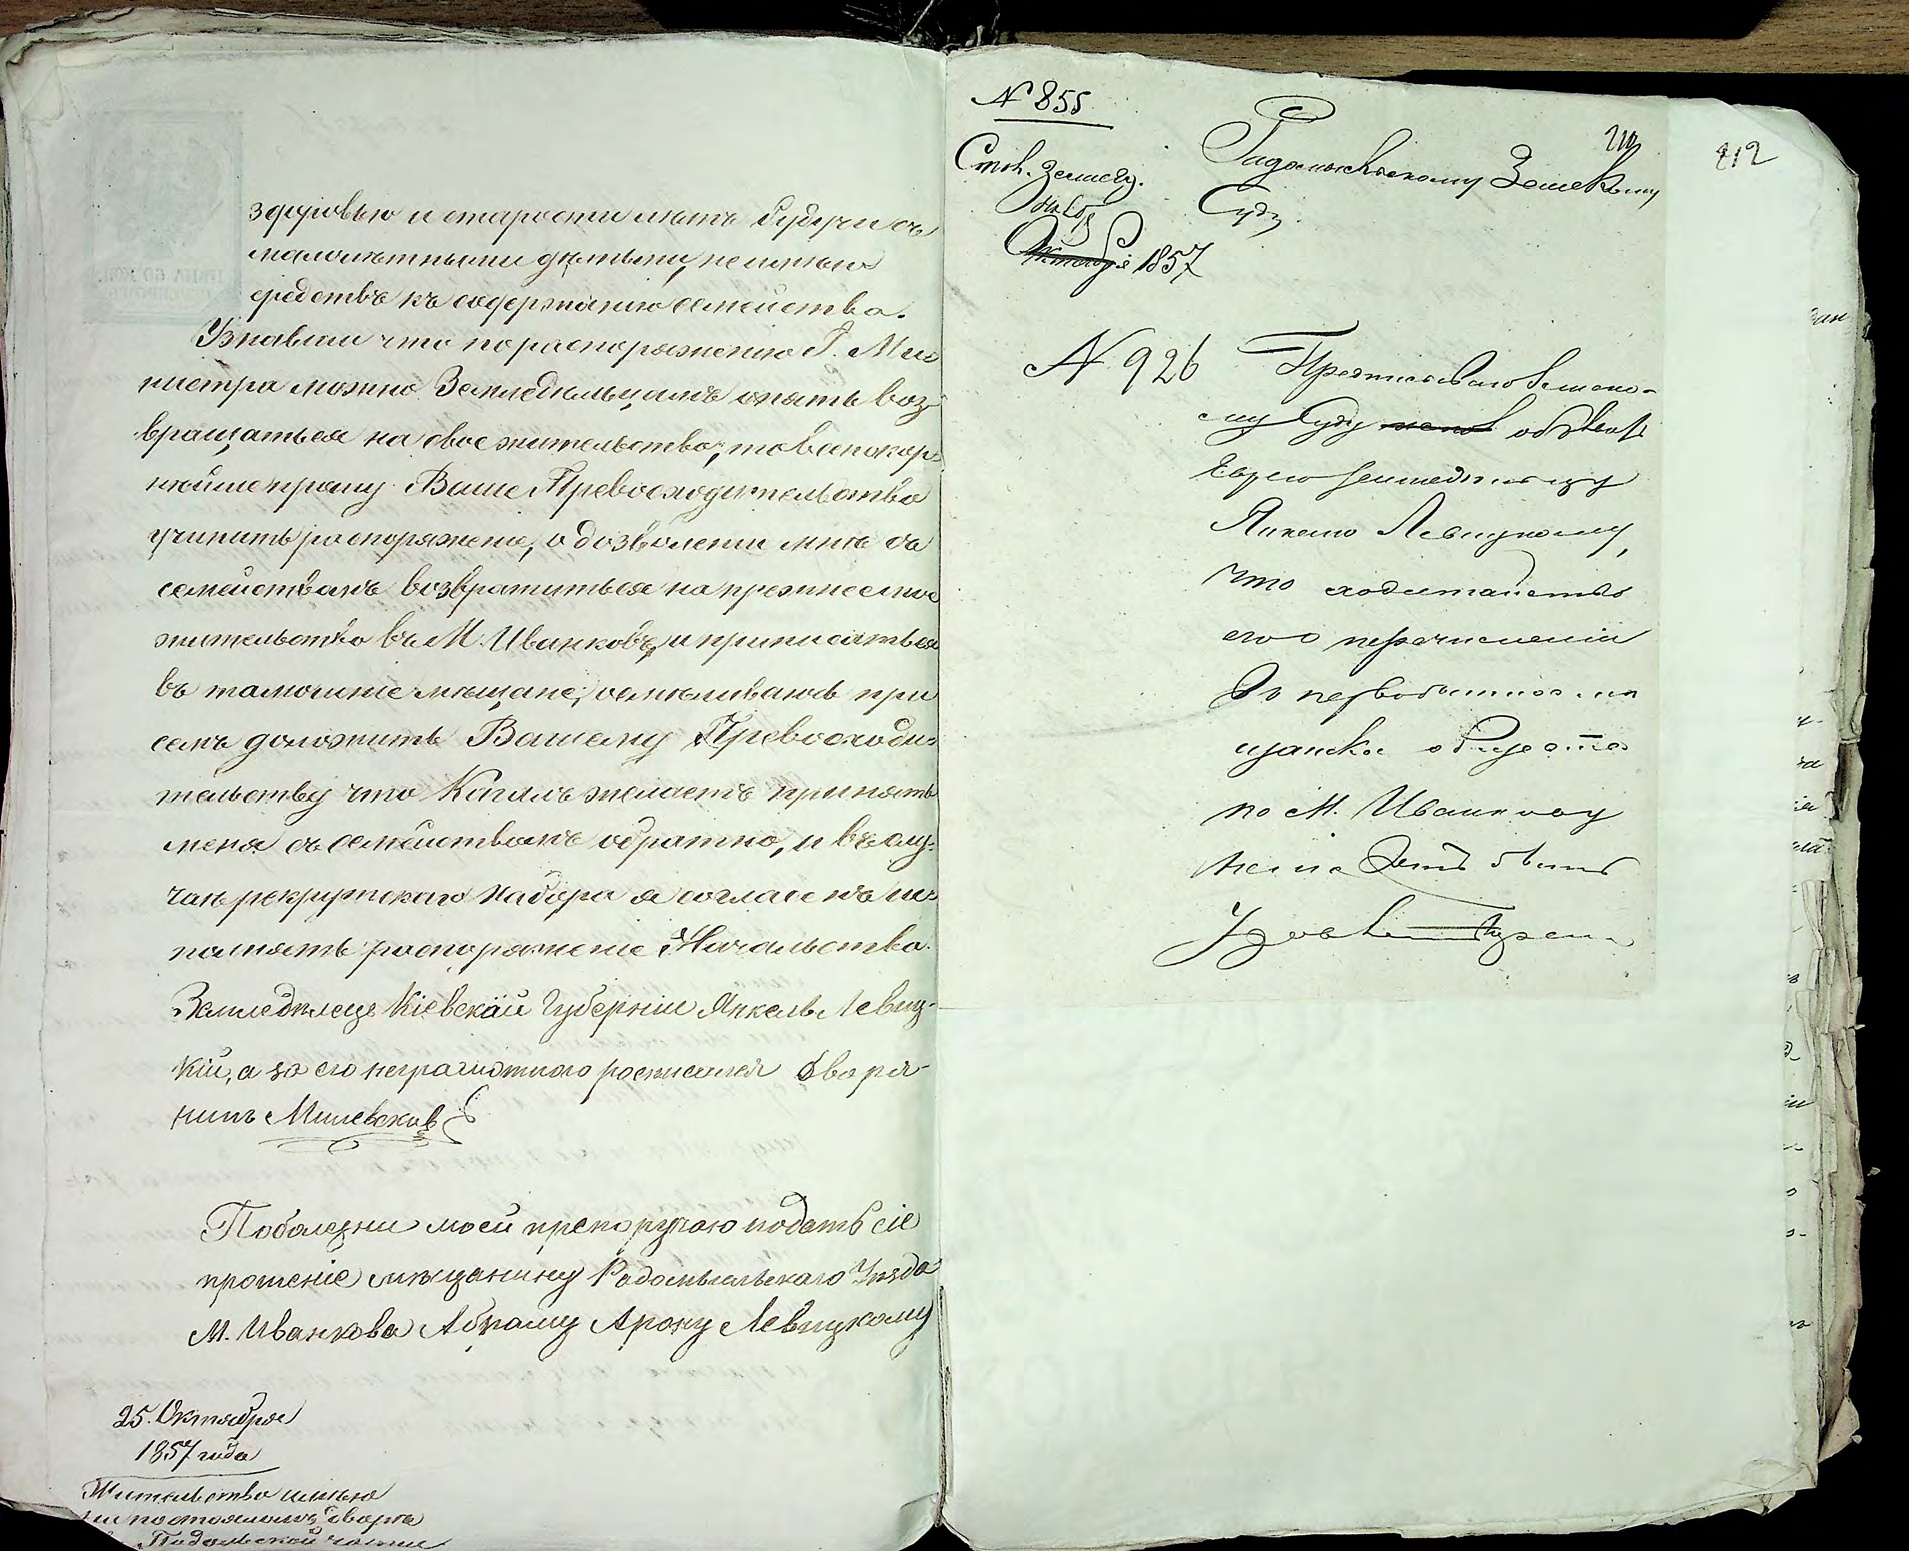 здоровью и старости лѣтъ будучи съ
малолѣтными дѣтьми, неимѣю
средствъ къ содержанію семейства.
Узнавши что по распоряженію Г. Ми-
нистра можно Земледѣльцамъ опять воз-
вращаться на свое жительство, то всепокор-
нѣйше прошу Ваше Превосходительство
учинить распоряженіе, о дозволеніи мнѣ съ
семействамъ возвратиться на прежнее мое
жительство въ М. Иванковъ, и приписаться
въ тамошніе мѣщане, осмѣливаюсь при
семъ доложить Вашему Превосходи-
тельству что Кагалъ желаетъ принять
меня съ семействамъ обратно, и въ слу-
чаѣ рекрутскаго набора я согласенъ ис-
полнять распоряженіе Начальства.
Земледѣлецъ Кіевскай Губерніи Янкель Левиц-
кій, а за его неграмотного росписался дворя-
нинъ Милевскій
По болезни моей препоручаю подать сіе
прошеніе мѣщанину Радомысльскаго Уѣзда
М. Иванкова Абраму Арону Левицкому
25. Октября
1857 года
Жительство имѣю
на постояломъ дворѣ
Подольской части
N 855
210
212
Радомысльскому Земскому
Суду.
Октября 1857
N 926
Предписываю Земско-
му Суду объявить
Еврею земледѣльцу
Янкелю Левицкому,
что ходатайство
его о перечисленіи
въ первобытное мѣ-
щанское общество
по М. Иванкову
не можетъ быть
удовлетворено